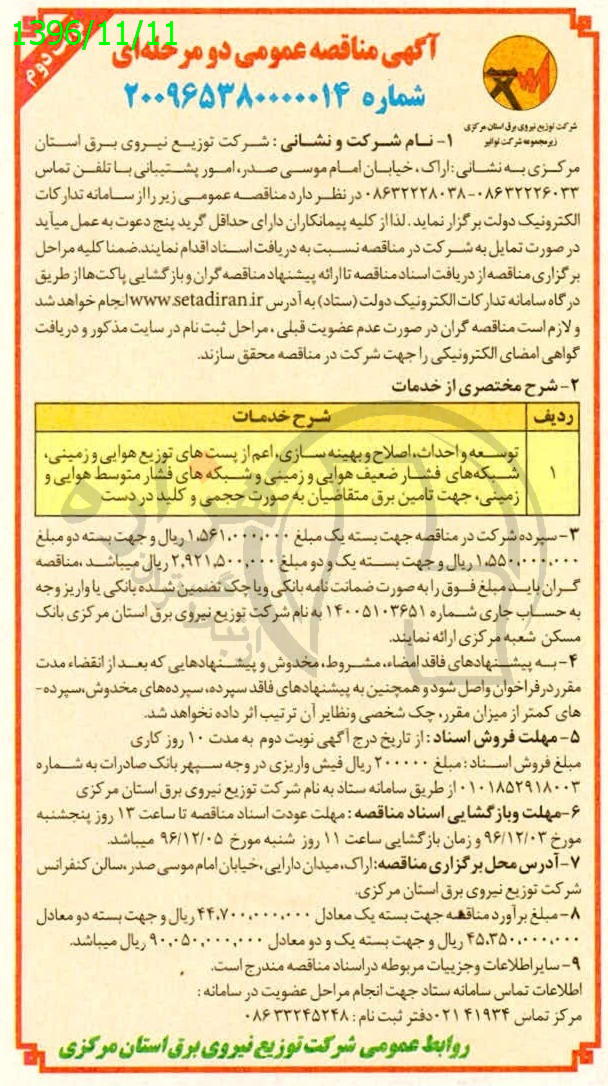 1396/11/11
نوبت دوم
آگهی مناقصه عمومی دو مرحله‌ای
شماره ۲۰۰۹۶۵۳۸۰۰۰۰۰۱۴
شرکت توزیع نیروی برق استان مرکزی
زیرمجموعه شرکت توانیر
۱- نـام شـرکت و نشـانی : شـرکت توزیـع نیـروی بـرق استـان
مرکـزی بـه نشـانی: اراک، خیابـان امـام موسـی صـدر، امـور پشـتیبانی بـا تلفـن تمـاس
۰۸۶۳۲۲۲۶۰۳۳-۰۸۶۳۲۲۲۸۰۳۸ در نظـر دارد مناقصـه عمومـی زیـر را از سـامانه تـدارکات
الکترونیک دولت برگزار نماید. لذا از کلیه پیمانکاران دارای حداقل گرید پنج دعوت به عمل میآید
در صورت تمایل به شـرکت در مناقصه نسـبت به دریافت اسـناد اقدام نمایند.ضمنا کلیه مراحل
برگزاری مناقصه از دریافت اسناد مناقصه تا ارائه پیشنهاد مناقصه گران و بازگشایی پاکت‌ها از طریق
درگاه سامانه تدارکات الکترونیک دولت (ستاد) به آدرس www.setadiran.ir انجام خواهد شد
و لازم است مناقصه گران در صورت عدم عضویت قبلی، مراحل ثبت نام در سایت مذکور و دریافت
گواهی امضای الکترونیکی را جهت شرکت در مناقصه محقق سازند.
۲- شرح مختصری از خدمات
ردیف شرح خدمـات
توسـعه و احداث، اصلاح و بهینه سـازی، اعم از پسـت های توزیع هوایی و زمینی،
۱ شـبکه‌های فشـار ضعیف هوایی و زمینی و شـبکه های فشار متوسط هوایی و
زمینی، جهت تامین برق متقاضیان به صورت حجمی و کلید در دست
۳- سپرده شرکت در مناقصه جهت بسته یک مبلغ ۱،۵۶۱،۰۰۰،۰۰۰ ریال و جهت بسته دو مبلغ
۱،۵۵۰،۰۰۰،۰۰۰ ریال و جهت بسـته یک و دو مبلغ ۲،۹۲۱،۵۰۰،۰۰۰ ریال میباشـد، مناقصه
گـران بایـد مبلغ فـوق را به صورت ضمانت نامه بانکی ویا چک تضمین شـده بانکی یا واریز وجه
به حسـاب جاری شـماره ۱۴۰۰۵۱۰۳۶۵۱ به نام شرکت توزیع نیروی برق استان مرکزی بانک
مسکن شعبه مرکزی ارائه نمایند.
۴- بـه پیشـنهادهای فاقد امضاء، مشـروط، مخدوش و پیشـنهادهایی که بعـد از انقضاء مدت
مقرر در فراخوان واصل شود و همچنین به پیشنهادهای فاقد سپرده، سپرده‌های مخدوش، سپرده-
های کمتر از میزان مقرر، چک شخصی ونظایر آن ترتیب اثر داده نخواهد شد.
۵- مهلت فروش اسناد: از تاریخ درج آگهی نوبت دوم به مدت ۱۰ روز کاری
مبلغ فروش اسـناد: مبلغ ۲۰۰۰۰۰ ریال فیش واریزی در وجه سـپهر بانک صادرات به شـماره
۰۱۰۱۸۵۲۹۱۸۰۰۳ از طریق سامانه ستاد به نام شرکت توزیع نیروی برق استان مرکزی
۶-مهلت وبازگشایی اسناد مناقصه : مهلت عودت اسناد مناقصه تا ساعت ۱۳ روز پنجشنبه
مورخ ۹۶/۱۲/۰۳ و زمان بازگشایی ساعت ۱۱ روز شنبه مورخ ۹۶/۱۲/۰۵ میباشد.
۷- آدرس محل برگزاری مناقصه: اراک، میدان دارایی، خیابان امام موسی صدر، سالن کنفرانس
شرکت توزیع نیروی برق استان مرکزی.
۸- مبلغ برآورد مناقصه جهت بسته یک معادل ۴۴،۷۰۰،۰۰۰،۰۰۰ ریال و جهت بسته دو معادل
۴۵،۳۵۰،۰۰۰،۰۰۰ ریال و جهت بسته یک و دو معادل ۹۰،۰۵۰،۰۰۰،۰۰۰ ریال میباشد.
۹- سایر اطلاعات وجزییات مربوطه در اسناد مناقصه مندرج است.
اطلاعات تماس سامانه ستاد جهت انجام مراحل عضویت در سامانه :
مرکز تماس ۴۱۹۳۴ ۰۲۱ دفتر ثبت نام : ۳۳۲۴۵۲۴۸ ۰۸۶
روابط عمومی شرکت توزیع نیروی برق استان مرکزی